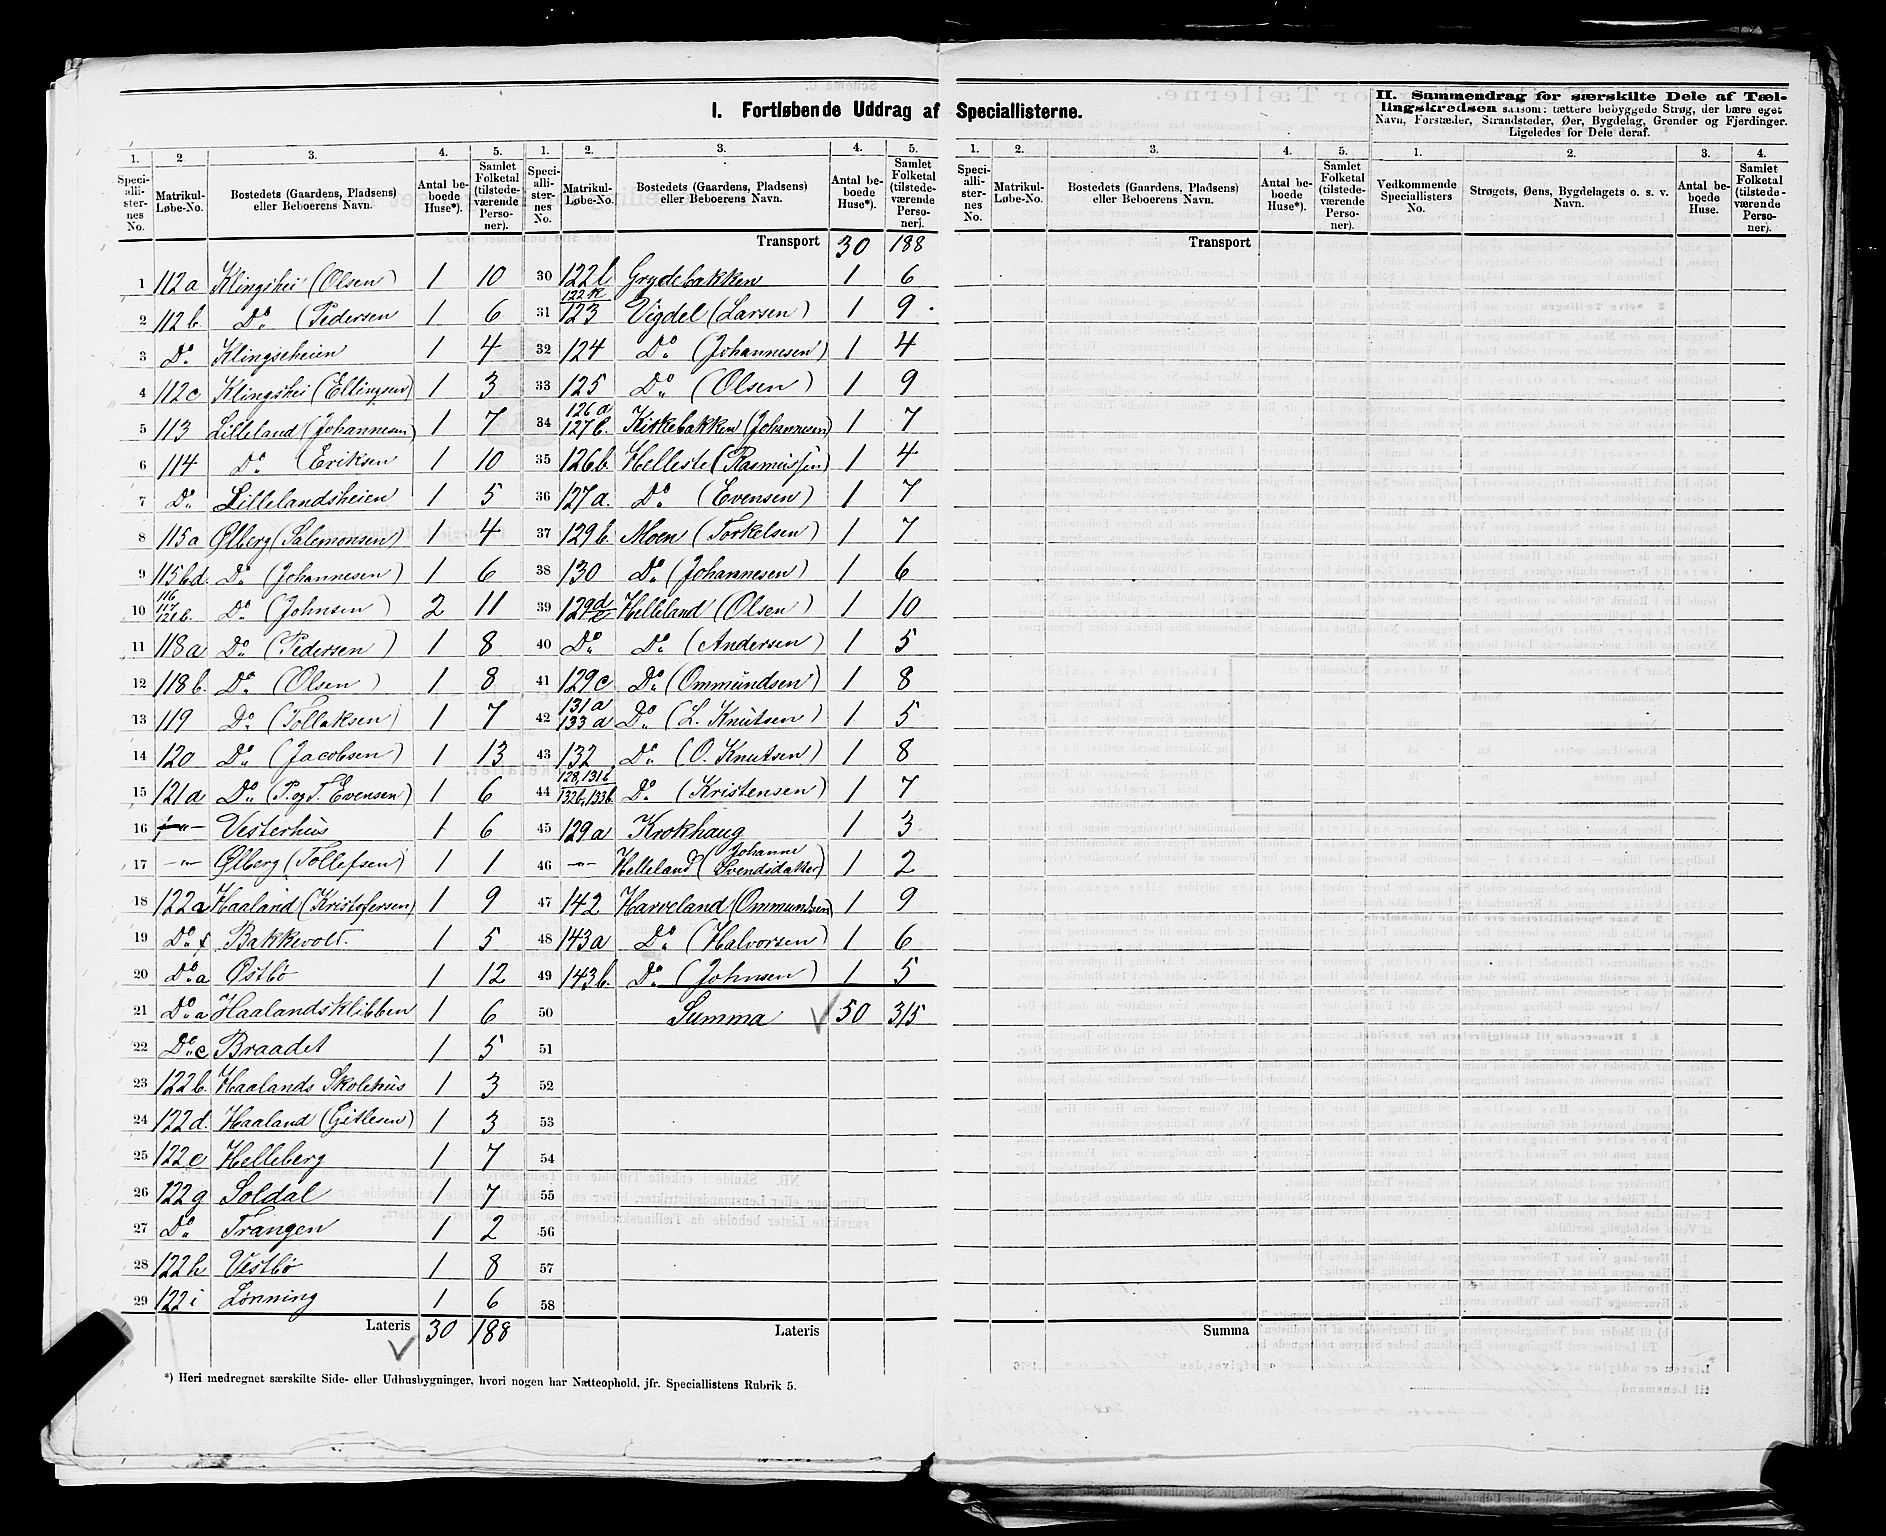 I. Fortløbende Uddrag af Speciallisterne.
II. Sammendrag for særskilte Dele af Tællingskredsen saasom: tættere bebyggede Strøg, der bære eget Navn, Forstæder, Strandsteder, Øer, Bygdelag, Grender og Fjerdinger. Ligeledes for Dele deraf.
1. 2. 3. 4. 5. 1. 2. 3. 4. 5. 1. 2. 3. 4. 5. 1. 2. 3. 4.
Speciallisternes No. Matrikul-Løbe-No. Bostedets (Gaardens, Pladsens) eller Beboerens Navn. Antal beboede Huse*). Samlet Folketal (tilstedeværende Personer).
Speciallisternes No. Matrikul-Løbe-No. Bostedets (Gaardens, Pladsens) eller Beboerens Navn. Antal beboede Huse*). Samlet Folketal (tilstedeværende Personer).
Speciallisternes No. Matrikul-Løbe-No. Bostedets (Gaardens, Pladsens) eller Beboerens Navn. Antal beboede Huse*). Samlet Folketal (tilstedeværende Personer).
Vedkommende Speciallisters No. Strøgets, Øens, Bygdelagets o. s. v. Navn. Antal beboede Huse. Samlet Folketal (tilstedeværende Personer).
1 112a Klingshei (Olsen) 1 10
2 112b. Do (Pedersen 1 6
3 Do Klingseheien 1 4
4 112c Klingshei (Ellingsen) 1 3
5 113 Lilleland (Johannesen) 1 7
6 114 Do (Eriksen 1 10
7 Do Lillelandsheien 1 5
8 115a Ølberg (Salemonsen) 1 4
9 115bd. Do (Johannesen) 1 6
10 116 117 121b. Do (Johnsen) 2 11
11 118a Do (Pedersen) 1 8
12 118b. Do (Olsen) 1 8
13 119 Do (Tollaksen) 1 7
14 120 Do (Jacobsen) 1 13
15 121a Do (P. og T. Evensen) 1 6
16 -"- Vesterhus 1 6
17 -"- Ølberg (Tollefsen) 1 1
18 122a Haaland (Kristofersen) 1 9
19 Do f Bakkevolt. 1 5
20 Do a Østbø 1 12
21 Do a Haalandsklibben 1 6
22 Do c Braadet 1 5
23 122b. Haalands Skolehus 1 3
24 122d. Haaland (Gitlesen) 1 3
25 122e Helleberg 1 7
26 122g Soldal 1 7
27 Do Trangen 1 2
28 122h Vestbø 1 8
29 122i Lønning 1 6
Lateris 30 188
Transport 30 188
30 122l Grydebakken 1 6
31 122k 123 Vigdel (Larsen) 1 9
32 124 Do (Johannesen) 1 4
33 125 Do (Olsen) 1 9
34 126a 127b. Kirkebakken (Johannesen) 1 7
35 126b. Helleste (Rasmussen) 1 4
36 127a. Do (Evensen) 1 7
37 129b. Moen (Torkelsen) 1 7
38 130 Do (Johannesen) 1 6
39 129d/e Helleland (Olsen) 1 10
40 Do Do (Andersen) 1 5
41 129c Do (Ommundsen) 1 8
42 131a 133a Do (L. Knutsen) 1 5
43 132 Do (O. Knutsen) 1 8
44 128, 131b 132b, 133b. Do (Kristensen) 1 7
45 129a Krokhaug 1 3
46 -"- Helleland (Johanne Svendsdatter) 1 2
47 142 Harveland (Ommundsen) 1 9
48 143a Do (Halvorsen) 1 6
49 143b. Do (Johnsen) 1 5
50 Summa 50 315
51
52
53
54
55
56
57
58
Lateris
Transport
Summa
*) Heri medregnet særskilte Side- eller Udhusbygninger, hvori nogen har Natteophold, jfr. Speciallistens Rubrik 5.